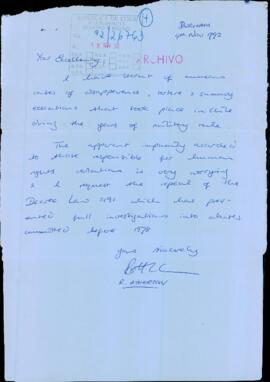 4
92/26763
ARCHIVO
4th Nov 1992
Your Excellency,
I have learnt of numerous
cases of disappearance, torture & summary
executions that took place in Chile
during the years of military rule
The apparent impunity accorded
to those responsible for human
rights violations is very worrying
& I request the repeal of the
Decree Law 2191 which has pre-
vented full investigations into abuses
committed before 1978
Yours sincerely